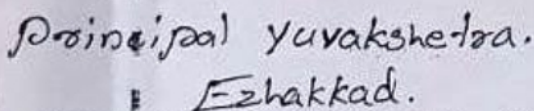 Principal yuvakshetra.
Ezhakkad.